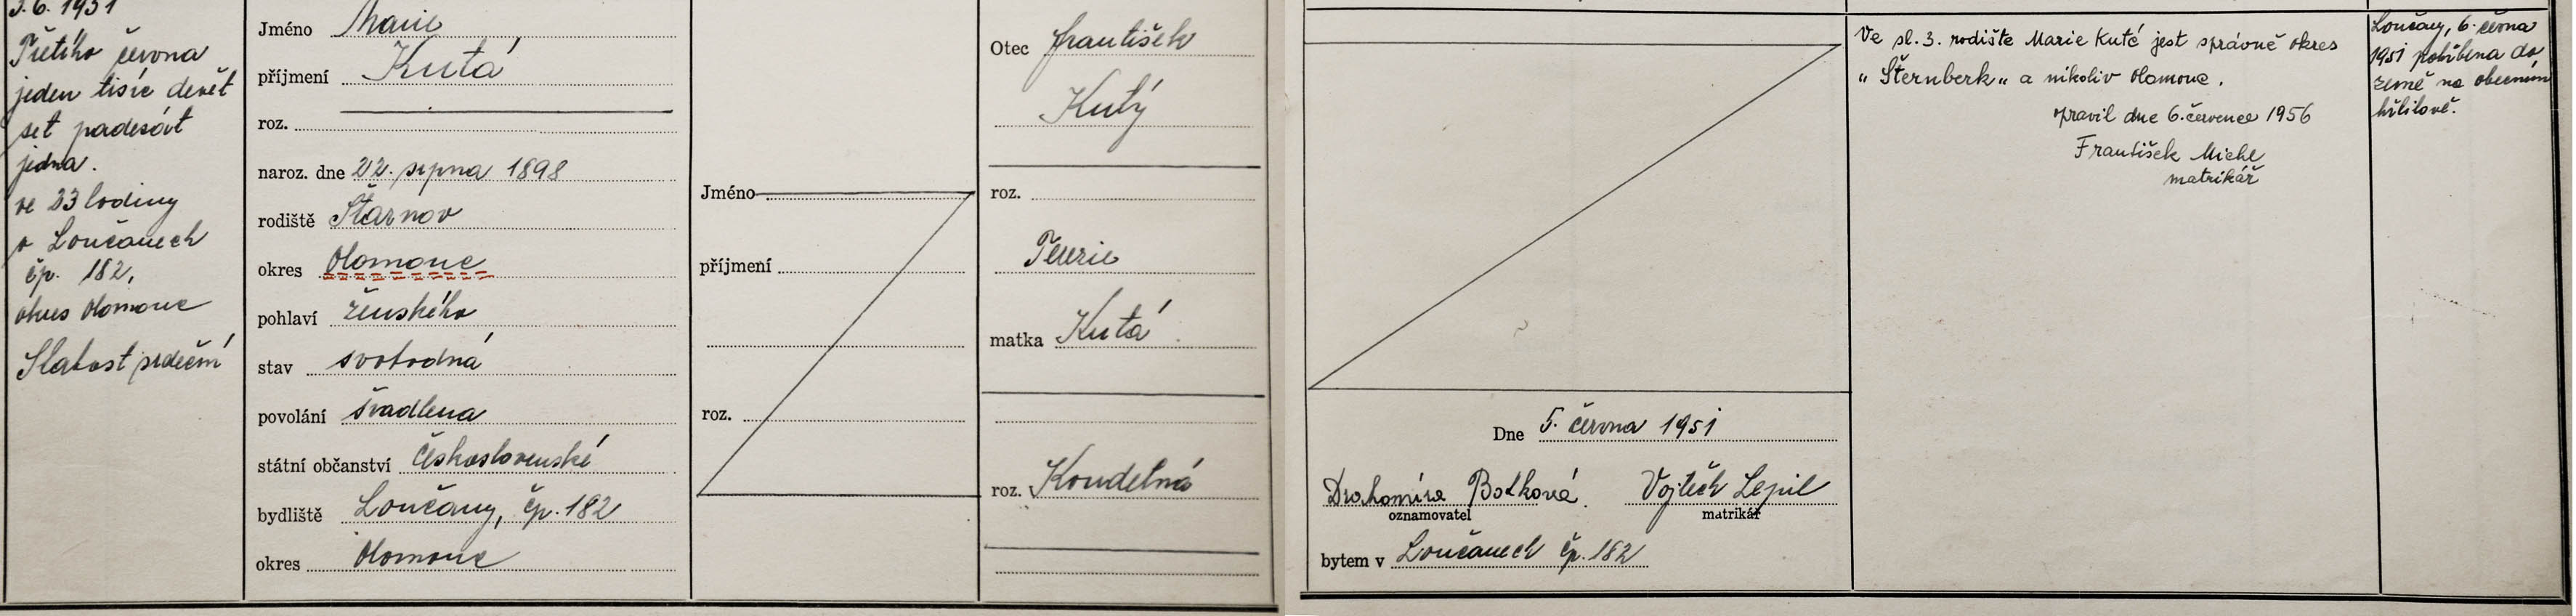 3.6.1951
Třetího června
jeden tisíc devět
set padesát
jedna.
ve 23 hodiny
v Loučanech
čp. 182,
okres Olomouc
Slabost srdeční
Jméno Marie
příjmení Kutá
roz.
naroz. dne 22. srpna 1898
rodiště Štarnov
okres Olomouc
pohlaví ženského
stav svobodná
povolání švadlena
státní občanství československé
bydliště Loučany, čp. 182
okres Olomouc
Jméno
příjmení
roz.
Otec František
Kutý
roz.
Terezie
matka Kutá
roz. Koudelná
Dne 5. června 1951
Drahomíra Vojtěch Lepil
oznamovatel matrikář
bytem v Loučanech čp. 182
Ve sl. 3. rodiště Marie Kuté jest správně okres
„Šternberk„ a nikoliv Olomouc.
opravil dne 6. července 1956
František Michl
matrikář
Loučany, 6. června
1951 pohřbena do
země na obecním
hřbitově.